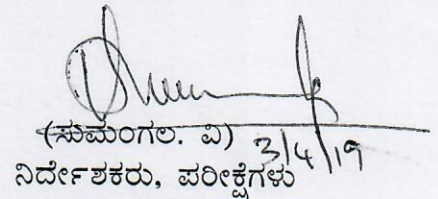 (ಸುಮಂಗಲ. ವಿ)
3/4/19
ನಿರ್ದೇಶಕರು, ಪರೀಕ್ಷೆಗಳು